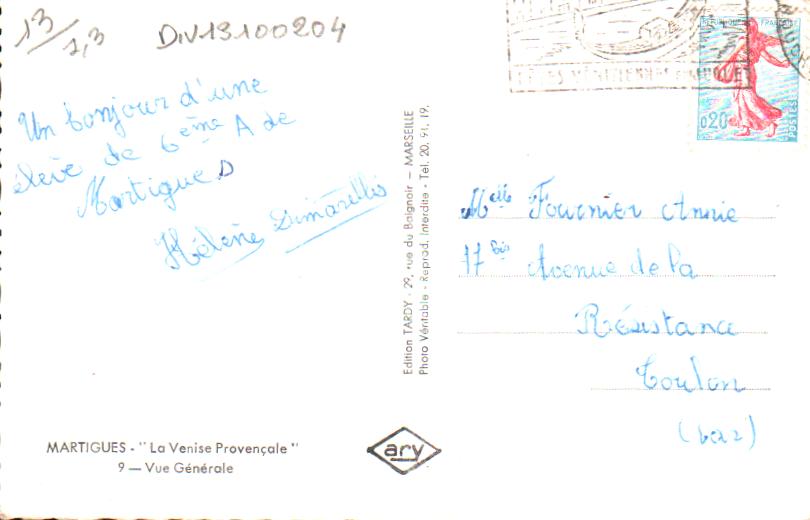 13/2,3
Div13100204
RÉPUBLIQUE FRANÇAISE
0,20
POSTES
Un bonjour d'une
élève de 6ème A de
Martigues
Hélène
Melle Fournier Annie
17 bis Avenue de la
Résistance
Toulon
(Var)
Edition TARDY - 29, rue du Baignoir - MARSEILLE
Photo Véritable - Reprod. Interdite - Tel. 20. 91. 19.
MARTIGUES - "La Venise Provençale"
9 — Vue Générale
ary